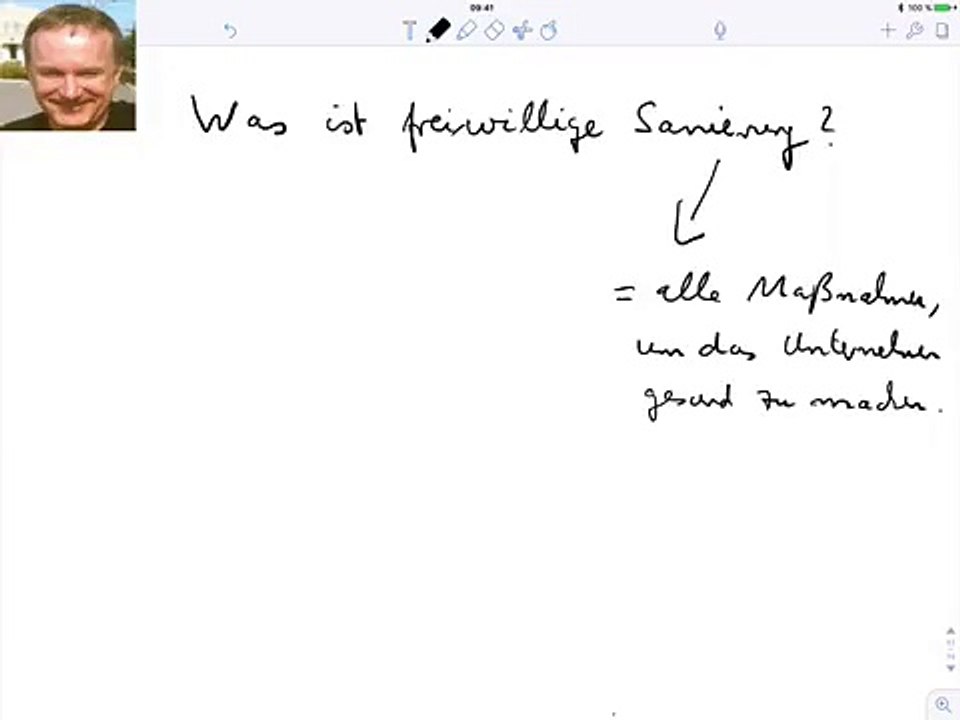 09:41
100 %
T
Was ist freiwillige Sanierung?
= alle Maßnahmen,
um das Unternehmen
gesund zu machen.